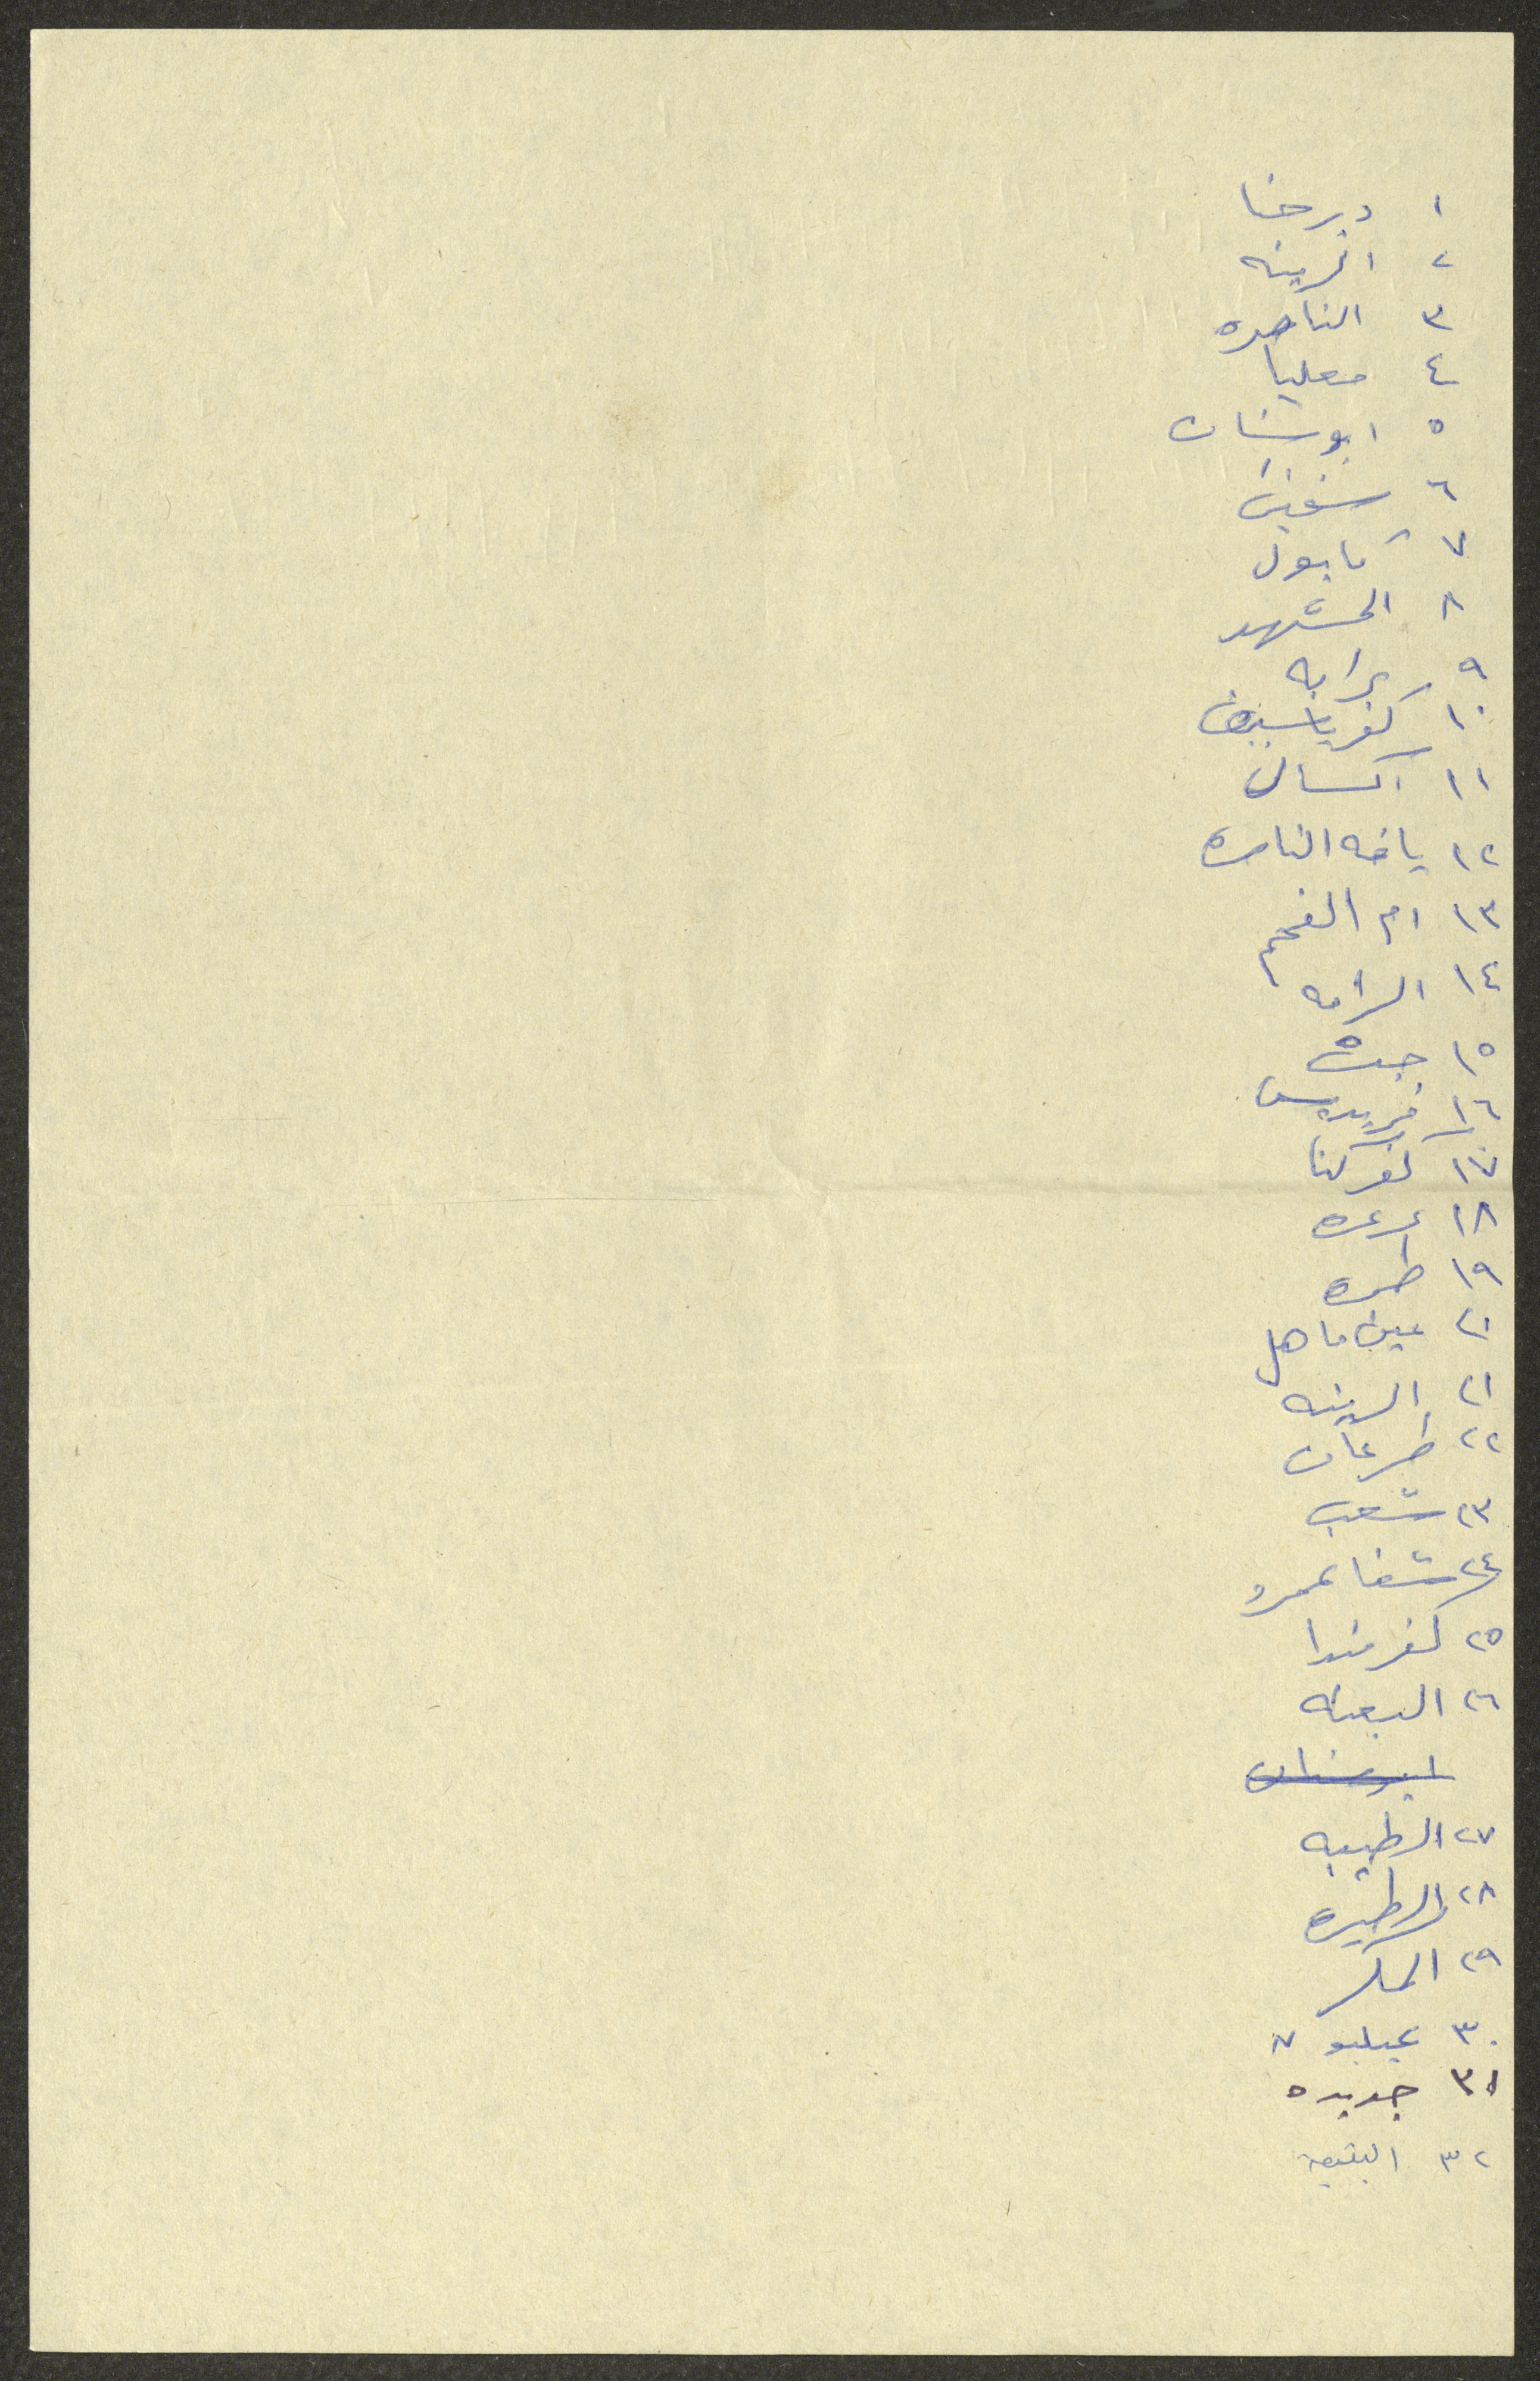 ١ ديرحنا
٢ الرينه
٣ الناصره
٤ معليا
٥ ابوسنان
٦ سخنين
٧ كابول
٨ المشهد
٩ عرابه
١٠ كفرياسيف
١١ اكسال
١٢ يافه الناصره
١٣ ام الفحم
١٤ الرامه
١٥ جت
١٦ فريديس
١٧ كفركنا
١٨ عرعره
١٩ طمره
٢٠ عين ماهل
٢١ الرينه
٢٢ طرعان
٢٣ شعب
٢٤ شفاعمرو
٢٥ كفرمندا
٢٦ البعنه
ابوسنان
٢٧ الطيبه
٢٨ الطيره
٢٩ المكر
٣٠ عيلبون
٣١ جديده
٣٢ البقيعة